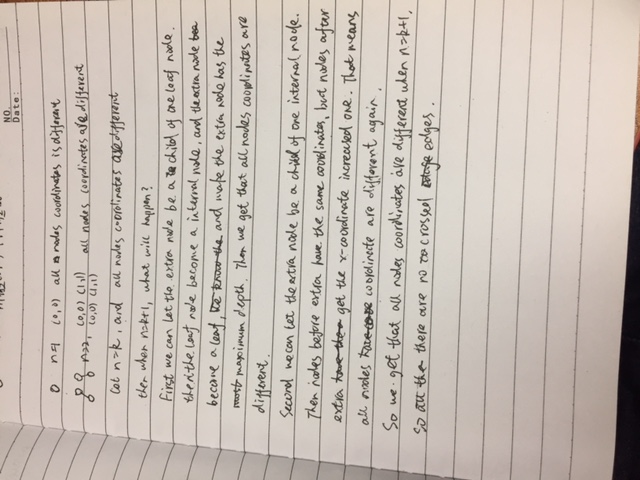 NO.
Date:
0 n=1 (0,0) all nodes coordinates is different
n=2, (0,0) (1,1) all nodes coordinates are different
(0,0) (1,1)
Let n=k, and all nodes coordinates are different
then when n=k+1, what will happen?
First we can let the extra node be a child of one leaf node.
then the leaf node become a internal node, and the extra node
become a leaf, we know the and make the extra node has the
most maximum depth. Then we get that all nodes coordinates are
different.
Second we can let the extra node be a child of one internal node.
Then nodes before extra have the same coordinates, but nodes after
extra have the get the x-coordinate increased one. That means
all nodes coordinate are different again.
So we get that all nodes coordinates are different when n=k+1.
So all the there are no crossed edges.